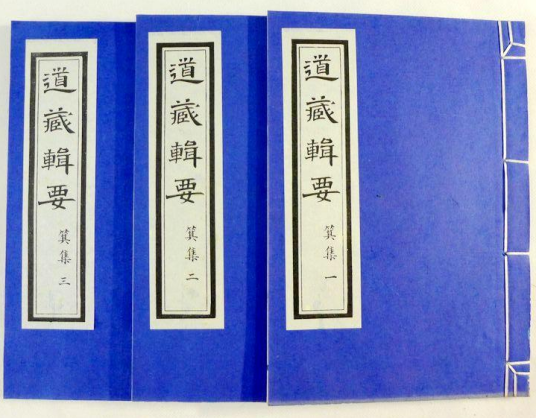 道藏輯要
箕集 一
道藏輯要
箕集 二
道藏輯要
箕集 三